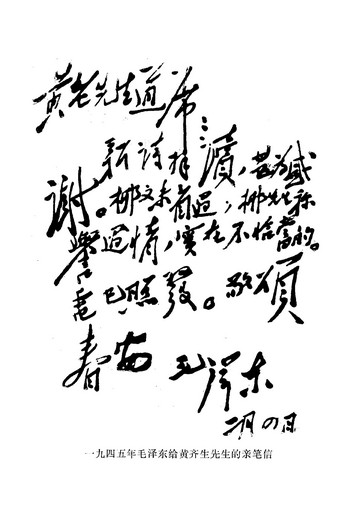 黄老先生道席：
新诗拜讀，甚为感
谢。柳文未看過，柳先生称
譽過情，實在不恰當的。
電已照發。敬頌
春安 毛泽东
二月四日
一九四五年毛泽东给黄齐生先生的亲笔信